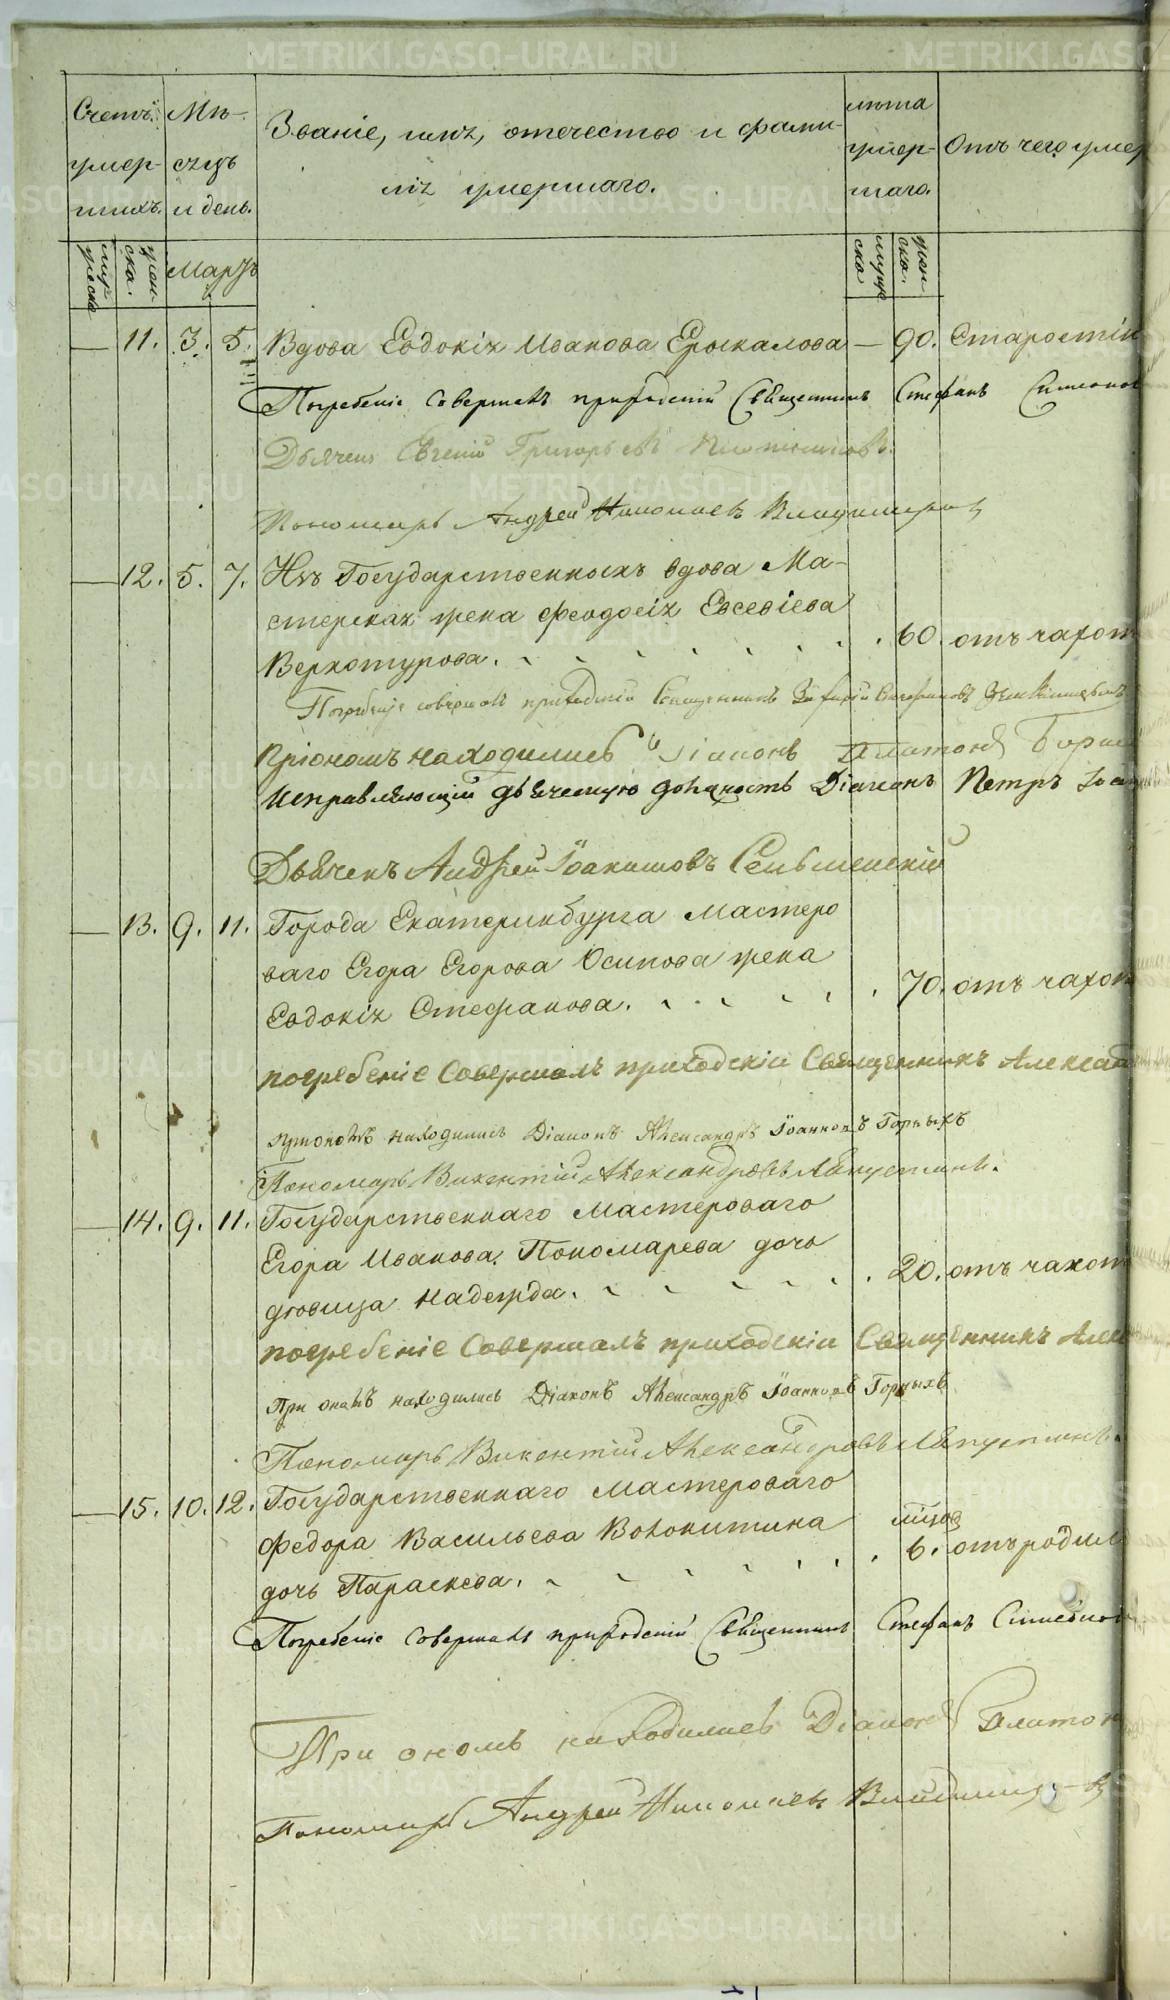 METRIKI.GASO-URAL.RU
Счетъ умер-шихъ.
Мѣ-сяцъ и день.
Званіе, имя, отечество и фами-
лія умершаго.
лѣта умер-шаго.
Отъ чего умер
мужеска
жен-ска.
Мартъ
мужеска
женска.
11. 3. 5. Вдова Евдокія Иванова Ерыкалова — 90. Старостію
Погребеніе совершалъ приходскій Священникъ Стефанъ
Дьячекъ Евгеній Григорьевъ
Пономарь Андрей Николаевъ Владимировъ
12. 5. 7. Изъ Государственныхъ вдова Ма-
стерская жена Феодосія Евсевіева
Верхотурова. 60. отъ чахот
Погребеніе совершалъ приходскій Священникъ
При ономъ находились Діаконъ Платонъ
Исправляющій дьяческую должность Діаконъ Петръ
Дьячекъ Андрей Іоакимовъ Сельменскій
13. 9. 11. Города Екатеринбурга мастеро
ваго Егора Егорова Осипова жена
Евдокія Стефанова. 70. отъ чахот
погребеніе Совершалъ приходскій Священникъ Алексан
При ономъ находились Діаконъ Александръ Іоанновъ Горныхъ
Пономарь Викентій Александровъ Ляпустинъ.
14. 9. 11. Государственнаго мастероваго
Егора Иванова Пономарева дочь
дѣвица Надежда. 20. отъ чахот
погребеніе Совершалъ приходскій Священникъ Алек
При ономъ находились Діаконъ Александръ Іоанновъ Горныхъ
Пономарь Викентій Александровъ Ляпустинъ.
15. 10. 12. Государственнаго мастероваго
Федора Васильева Волокитина
дочь Параскева. 6. отъ родим
Погребеніе совершалъ приходскій Священникъ Стефанъ
При ономъ находились Діаконъ Платон
Пономарь Андрей Николаевъ Владимировъ